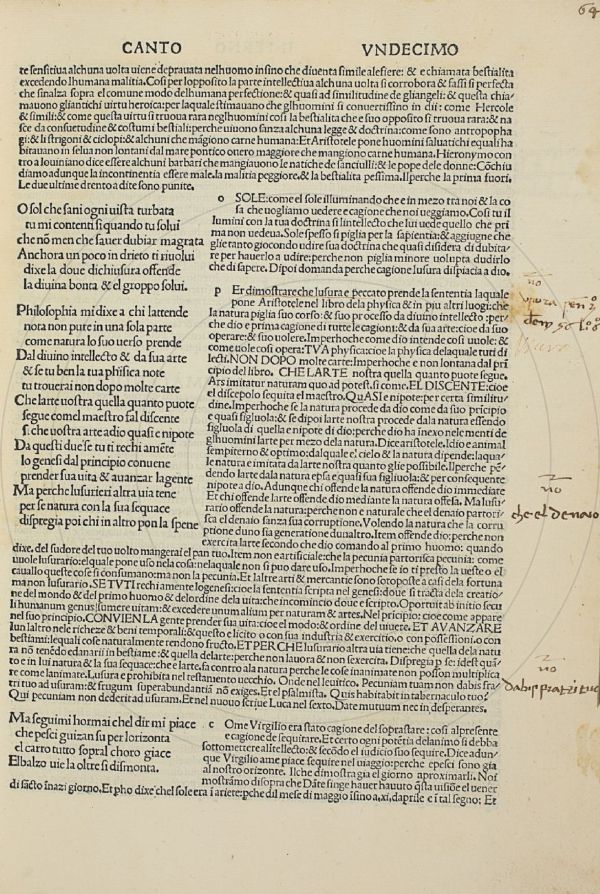 64
CANTO VNDECIMO
te sensitiua alchuna uolta uiene deprauata nelhuomo insino che diuenta simile alefiere: & e chiamata bestialita
excedendo lhumana malitia. Cosi per lopposito la parte intellectiua alchuna uolta si corrobora & fassi si perfecta
che sinalza sopra el comune modo delhumana perfectione: & quasi ad similitudine de gliangeli: & questa chia-
mauono gliantichi uirtu heroica: per laquale stimauano che glhuomini si conuertissino in dii: come Hercole
& simili: & come questa uirtu si truoua rara neglhuomini cosi la bestialita che e suo opposito si truoua rara: & na
sce da consuetudine & costumi bestiali: perche uiuono sanza alchuna legge & doctrina: come sono antropopha
gi: & listrigoni & ciclopi: & alchuni che mãgiono carne humana: Et Aristotele pone huomini saluatichi equali ha
bitauano in selua non lontani dal mare pontico otero maggiore che mangiono carne humana. Hieronymo con
tro a Iouiniano dice essere alchuni barbari che mangiauono le natiche de fanciulli: & le pope dele donne: Cõchiu
diamo adunque la incontinentia essere male, la malitia peggiore, & la bestialita pessima. Ilperche la prima fuori.
Le due ultime drento a dite sono punite.
O sol che sani ogni uista turbata
tu mi contenti si quando tu solui
che nõ men che sauer dubiar magrata
Anchora un poco in drieto ti riuolui
dixe la doue dichusura offende
la diuina bonta & el groppo solui.
o SOLE: come el sole illuminando che e in mezo tra noi & la co
sa che uogliamo uedere e cagione che noi ueggiamo. Cosi tu il
lumini con la tua doctrina si lintellecto che lui uede quello che pri
ma non uedeua. Sole spesso si piglia per la sapientia: & aggiugne che
glie tanto giocondo udire sua doctrina che quasi disidera di dubita
re per hauerlo a udire: perche non piglia minore uolupta dudirlo
che di sapere. Dipoi domanda perche cagione lusura dispiacia a dio.
Philosophia mi dixe a chi lattende
nota non pure in una sola parte
come natura lo suo uerso prende
Dal diuino intellecto & da sua arte
& se tu ben la tua phisica note
tu trouerai non dopo molte carte
Che larte uostra quella quanto puote
segue comel maestro fal discente
si che uostra arte adio quasi e nipote
Da questi due se tu ti rechi amẽte
lo genesi dal principio conuene
prender sua uita & auanzar la gente
Ma perche lusurieri altra uia tene
per se natura con la sua sequace
dispregia poi chi in altro pon la spene
p Er dimostrare che lusura e peccato prende la sententia laquale
pone Aristotele nel libro dela physica & in piu altri luoghi: che
la natura piglia suo corso: & suo processo da diuino intellecto: per-
che dio e prima cagione di tutte le cagioni: & da sua arte: cioe da suo
operare: & suo uolere. Imperhoche come dio intende cosi uuole: &
come uole cosi opera: TVA physica: cioe la physica delaquale tuti di-
lecti. NON DOPO molte carte: Imperhoche e non lontana dal pri
cipio del libro. CHE LARTE nostra quella quanto puote segue.
Ars imitatur naturam quo ad potest. si come. EL DISCENTE: cioe
el discepolo sequita el maestro. QVASI e nipote: per certa similitu-
dine. Imperhoche se la natura procede da dio come da suo pricipio
e quasi figluola: & se dipoi larte nostra procede dala natura essendo
figluola di quella e nipote di dio: perche dio ha inexo nele menti de
glhuomini larte per mezo dela natura. Dice aristotele. Idio e animal
sempiterno & optimo: dalquale el cielo & la natura dipende: laqua-
le natura e imitata da larte nostra quanto glie possibile. Ilperche pẽ-
dendo larte dala natura e psa e quasi sua figluola: & per consequente
nipote a dio. Adunque chi offende la natura offende dio immediate
Et chi offende larte offende dio mediante la natura offesa. Ma lusu-
rario offende la natura: perche non e naturale che el danaio partori-
sca el denaio sanza sua corruptione. Volendo la natura che la corru
ptione duno sia generatione dunaltro. Item offende dio: perche non
exercita larte secondo che dio comando al primo huomo: quando
dixe. del sudore del tuo uolto mangerai el pan tuo. Item non e artificiale: che la pecunia partorisca pecunia: come
uuole lusurario: elquale pone uso nela cosa: nelaquale non si puo dare uso. Imperhoche se io ti presto la ueste o el
cauallo queste cose si consumano: ma non la pecunia. Et laltre arti & mercantie sono sotoposte a casi dela fortuna
ma non lusurario. SE TVTI rechi amente logenesi: cioe la sententia scripta nel genesi: doue si tracta dela creatio-
ne del mondo & del primo huomo & delordine dela uita: che incomincio doue e scripto. Oportuit ab initio secu
li humanum genus sumere uitam: & excedere unum alium per naturam & artes. Nel pricipio: cioe come appare
nel suo principio. CONVIEN LA gente prender sua uita: cioe el modo: & ordine del uiuere. ET AVANZARE
lun laltro nele richeze & beni temporali: & questo e licito o con sua industria & exercitio. o con possessioni. o con
bestiami: lequali cose naturalmente rendono fructo. ET PERCHE lusurario altra uia tiene: che quella dela natu
ra nõ tenẽdo edanarii in bestiame: & quella delarte: perche non lauora & non sexercita. Dispregia p se: idest quã-
to e in lui natura & la sua sequace: che e larte. fa contro ala natura perche le cose inanimate non posson multiplica
re come lanimate. Lusura e prohibita nel testamento uecchio. Onde nel leuitico. Pecuniam tuam non dabis fra-
tri tuo ad usuram: & frugum superabundantiã nõ exiges. Et el psalmista. Quis habitabit in tabernaculo tuo?
Qui pecuniam non dederit ad usuram. Et nel nuouo scriue Luca nel sexto. Date mutuum nec in desperantes.
Ma seguimi hormai chel dir mi piace
che pesci guizan su per lorizonta
el carro tutto sopral choro giace
Elbalzo uie la oltre si dismonta.
c Ome Virgilio era stato cagione del soprastare: cosi alpresente
e cagione de sequitare. Et certo ogni potẽtia delanimo si debba
sottomettere alitellecto: & secõdo el iudicio suo sequire. Dice adun-
que Virgilio ame piace sequire nel uiaggio: perche epesci sono gia
al nostro orizonte. Ilche dimostra gia el giorno aproximarli. Noi
mostrãmo disopra che Dãte finge hauer hauuto q̃sta uisiõe el uener
di sãcto ĩnazi giorno. Et pho dixe chel sole era ĩ ariete: pche dil mese di maggio ĩsino a. xi. daprile e ĩ tal segno; Et
no
no
che el denaio
no
dabis fratri tuo